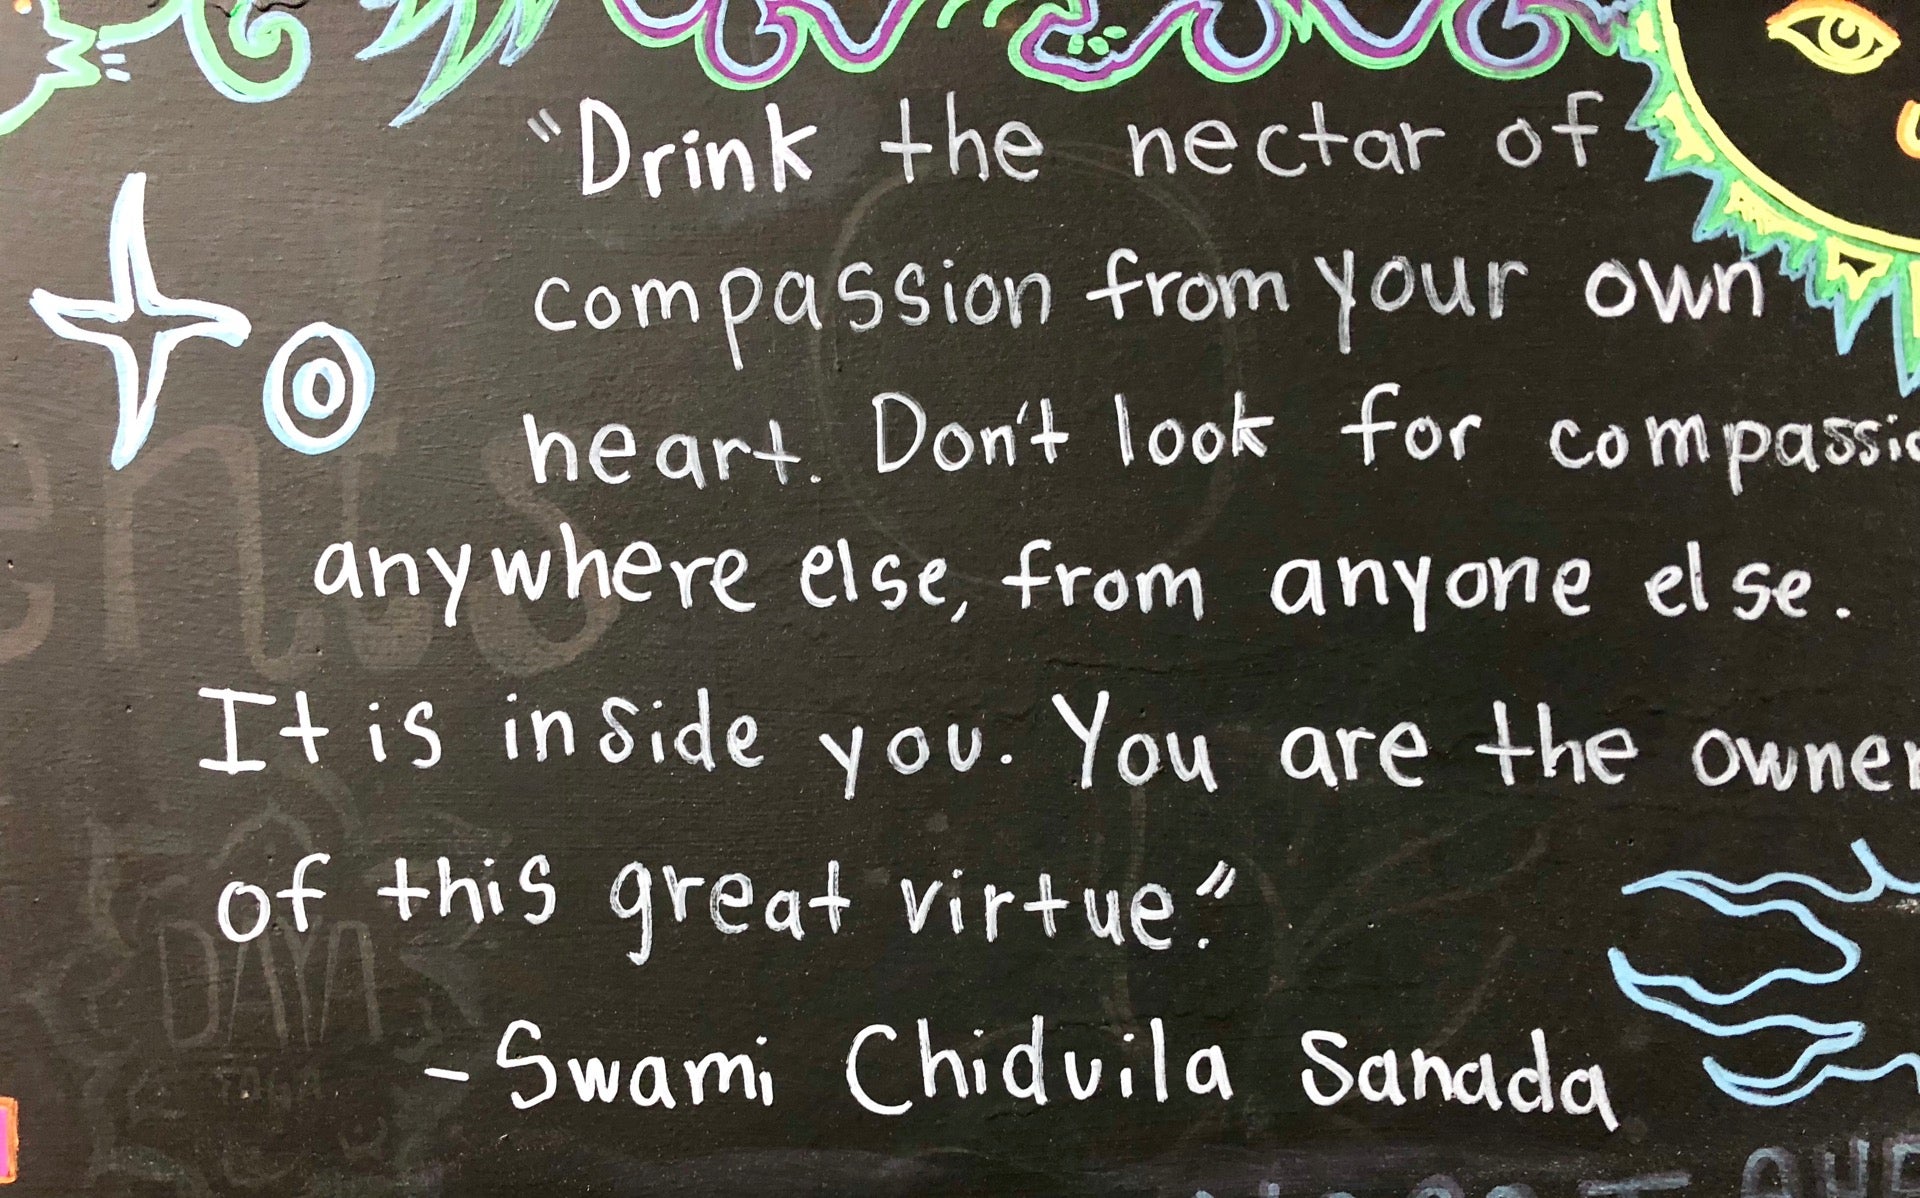 "Drink the nectar of
compassion from your own
heart. Don't look for compassio
anywhere else, from anyone else.
It is inside you. You are the owner
of this great virtue."
DAYA
YOGA
- Swami Chidvila Sanada